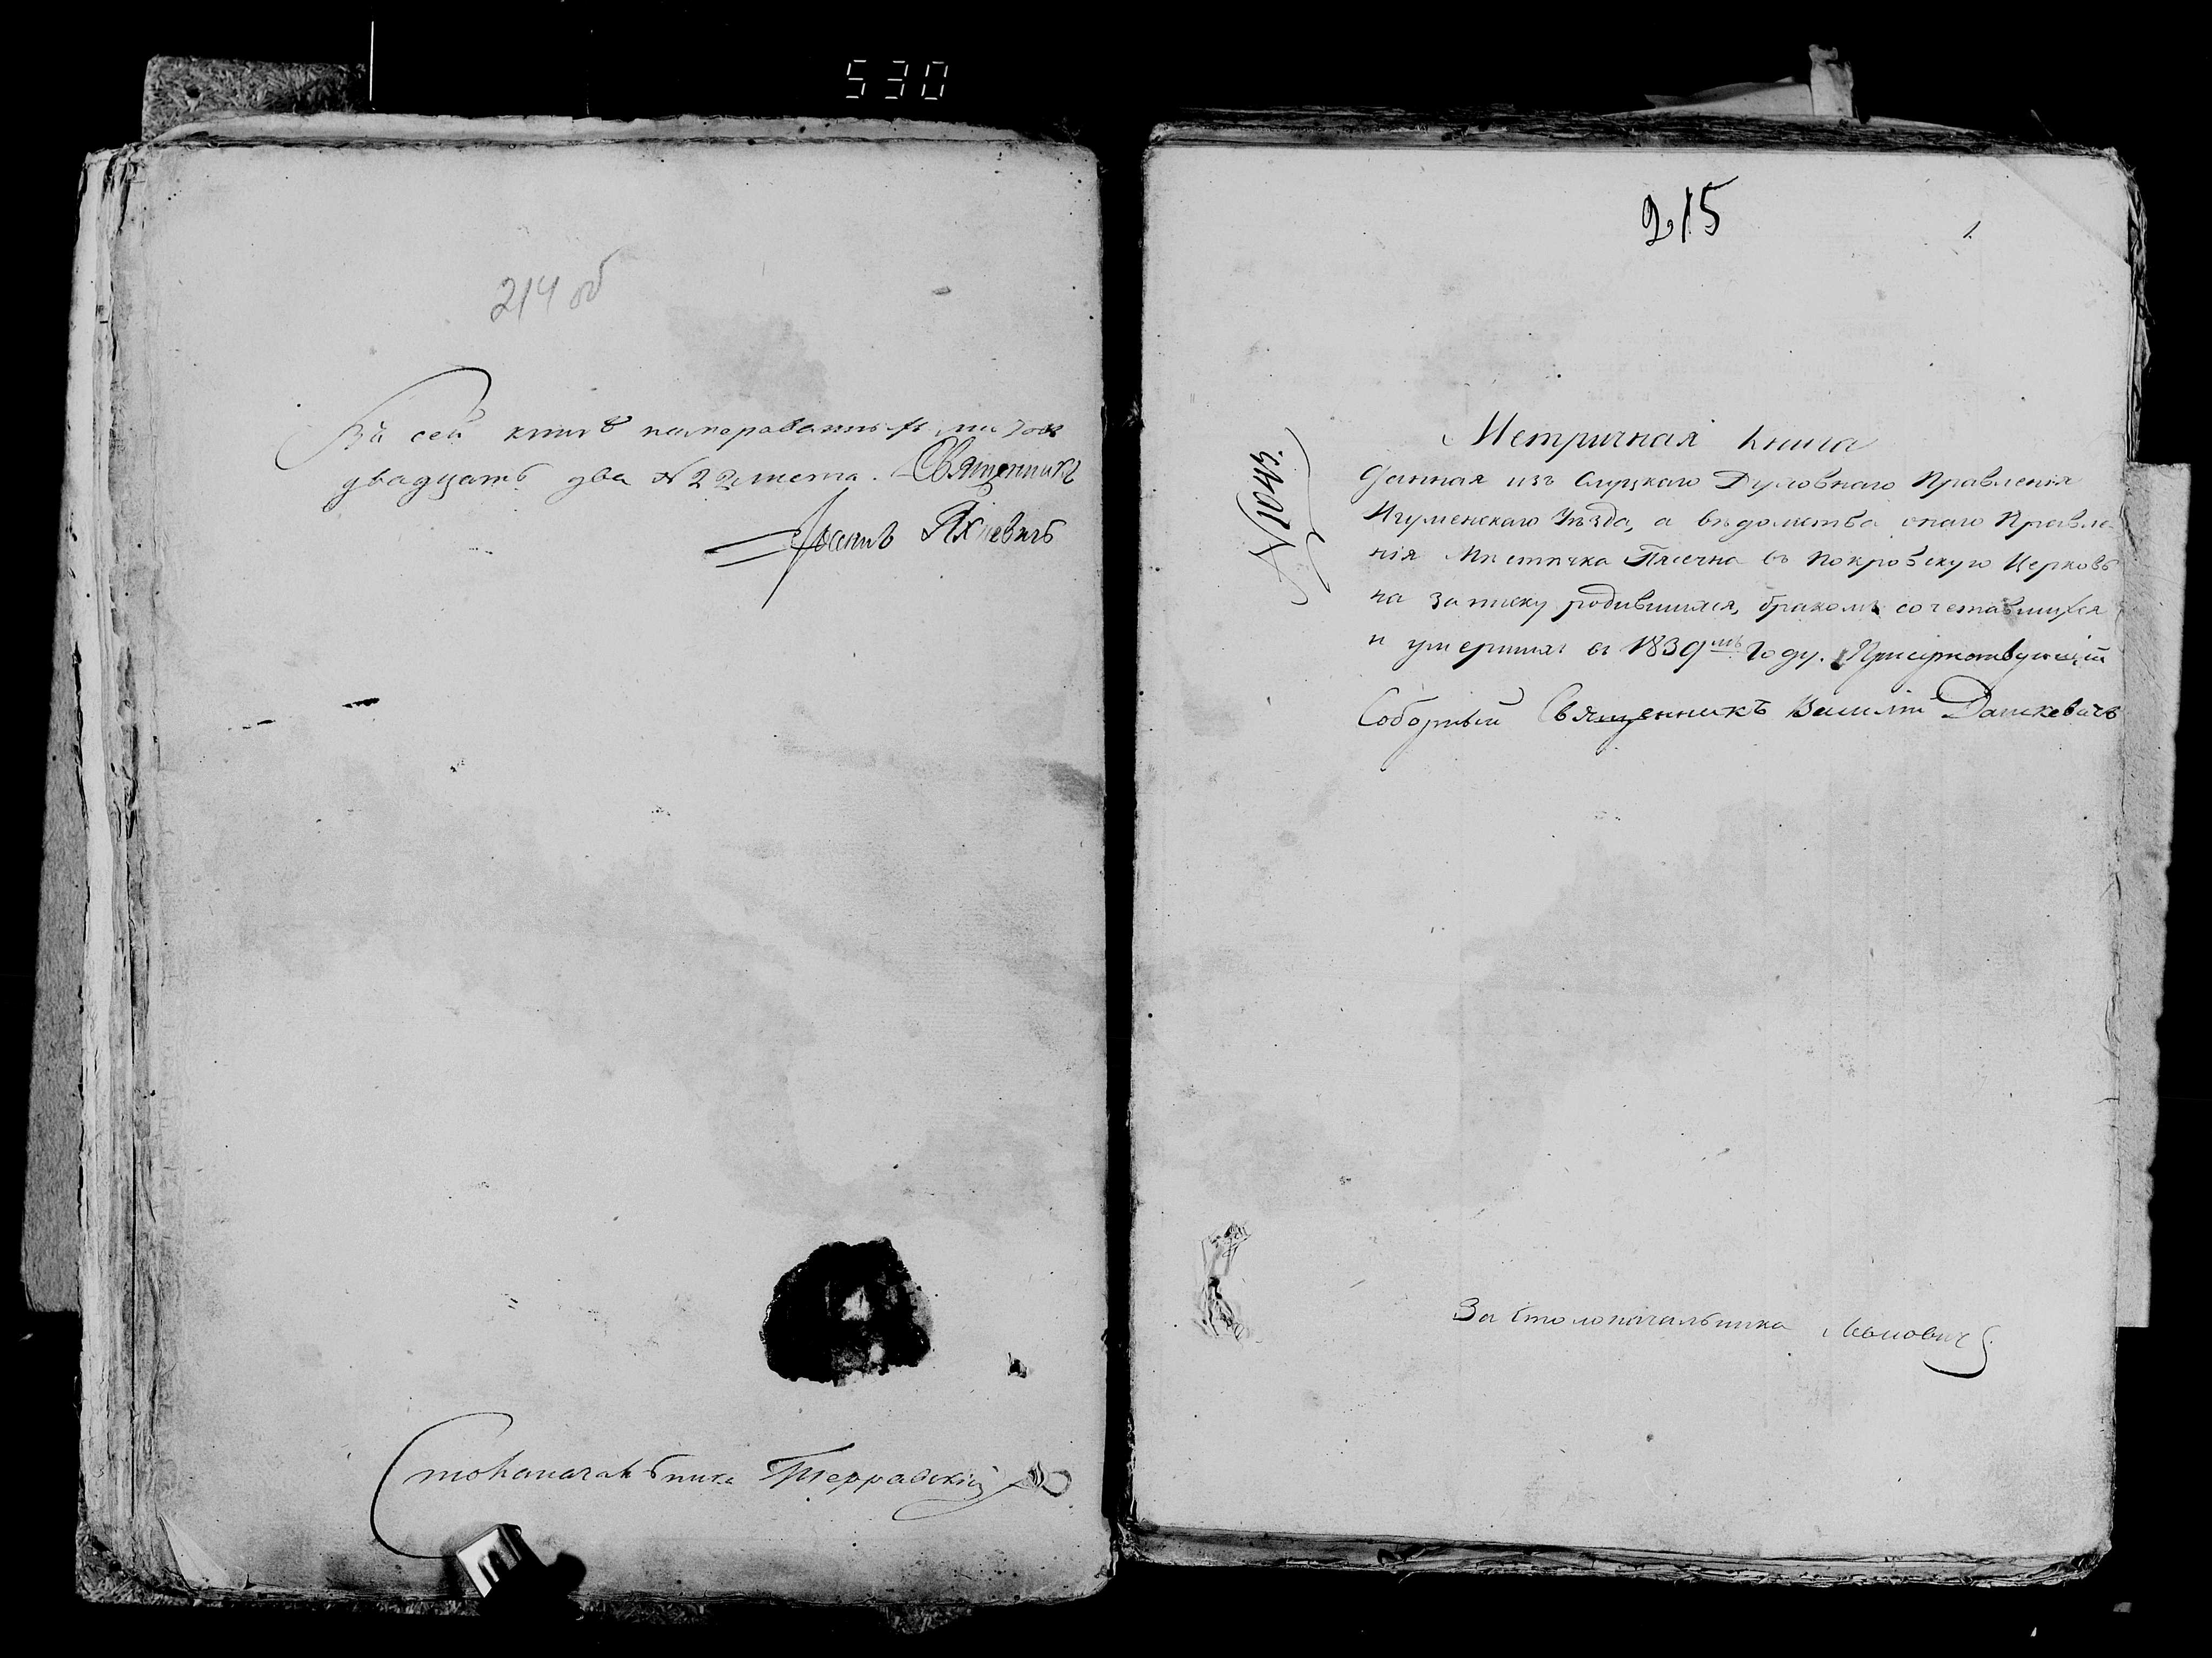 530
214 об
Въ сей книгѣ нумерованныхъ листовъ
двадцать два № 22 листа. Священникъ
Іосифъ
Столоначальника
215
1.
№ 1043.
Метричная книга
Данная изъ Слуцкаго Духовнаго Правленія
Игуменскаго Уѣзда, а вѣдомства онаго Правле
нія Мѣстечка Пясечна въ Покровскую Церковь
на записку родившихся, бракомъ сочетавшихся
и умершихъ въ 1839мъ Году. Присутствующій
Соборный Священникъ Василій Дашкевичъ
За Столоначальника